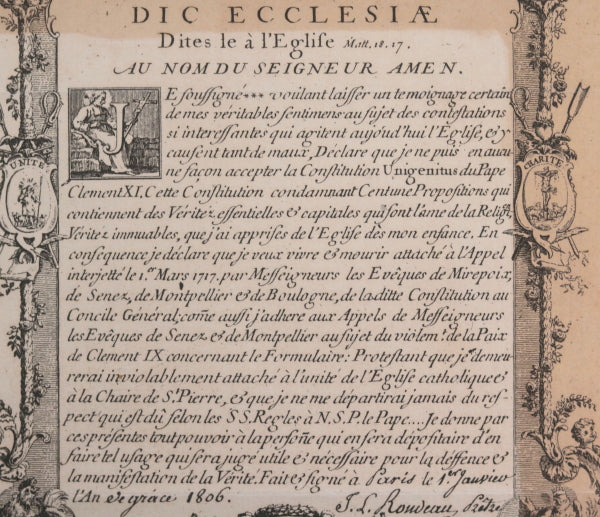 DIC ECCLESIÆ
Dites le à l'Eglise Matt. 18. 17.
AU NOM DU SEIGNEUR AMEN.
JE soussigné*** voulant laisser un temoignage certain
de mes véritables sentimens au sujet des contestations
si interessantes qui agitent aujoud'hui l'Eglise, et y
causent tant de maux, Déclare que je ne puis en aucu-
ne façon accepter la Constitution Unigenitus du Pape
Clement XI, Cette Constitution condamnant Cent une Propositions qui
contiennent des Véritez essentielles et capitales qui sont l'ame de la Religⁿ.
Véritez immuables, que j'ai apprises de l'Eglise dès mon enfance. En
conséquence je déclare que je veux vivre et mourir attaché à l'Appel
interjetté le 1.er Mars 1717. par Messeigneurs les Evêques de Mirepoix,
de Senez, de Montpellier et de Boulogne, de laditte Constitution au
Concile Général; com̃e aussi j'adhere aux Appels de Messeigneurs
les Evêques de Senez et de Montpellier au sujet du violem.t de la Paix
de Clement IX concernant le Formulaire: Protestant que je demeu
rerai inviolablement attaché à l'unité de l'Église catholique et
à la Chaire de St. Pierre, et que je ne me départirai jamais du res-
pect qui est dû selon les SS. Regles à N.S.P. le Pape.... Je donne par
ces présentes tout pouvoir à la persoñe qui en sera dépositaire d'en
faire tel usage qui sera jugé utile et nécessaire pour la deffence et
la manifestation de la Vérité. Fait et signé à Paris le 1er Janvier
l'An de grace 1806.
J. L. Rondeau, Prêtre
UNITÉ
CHARITÉ